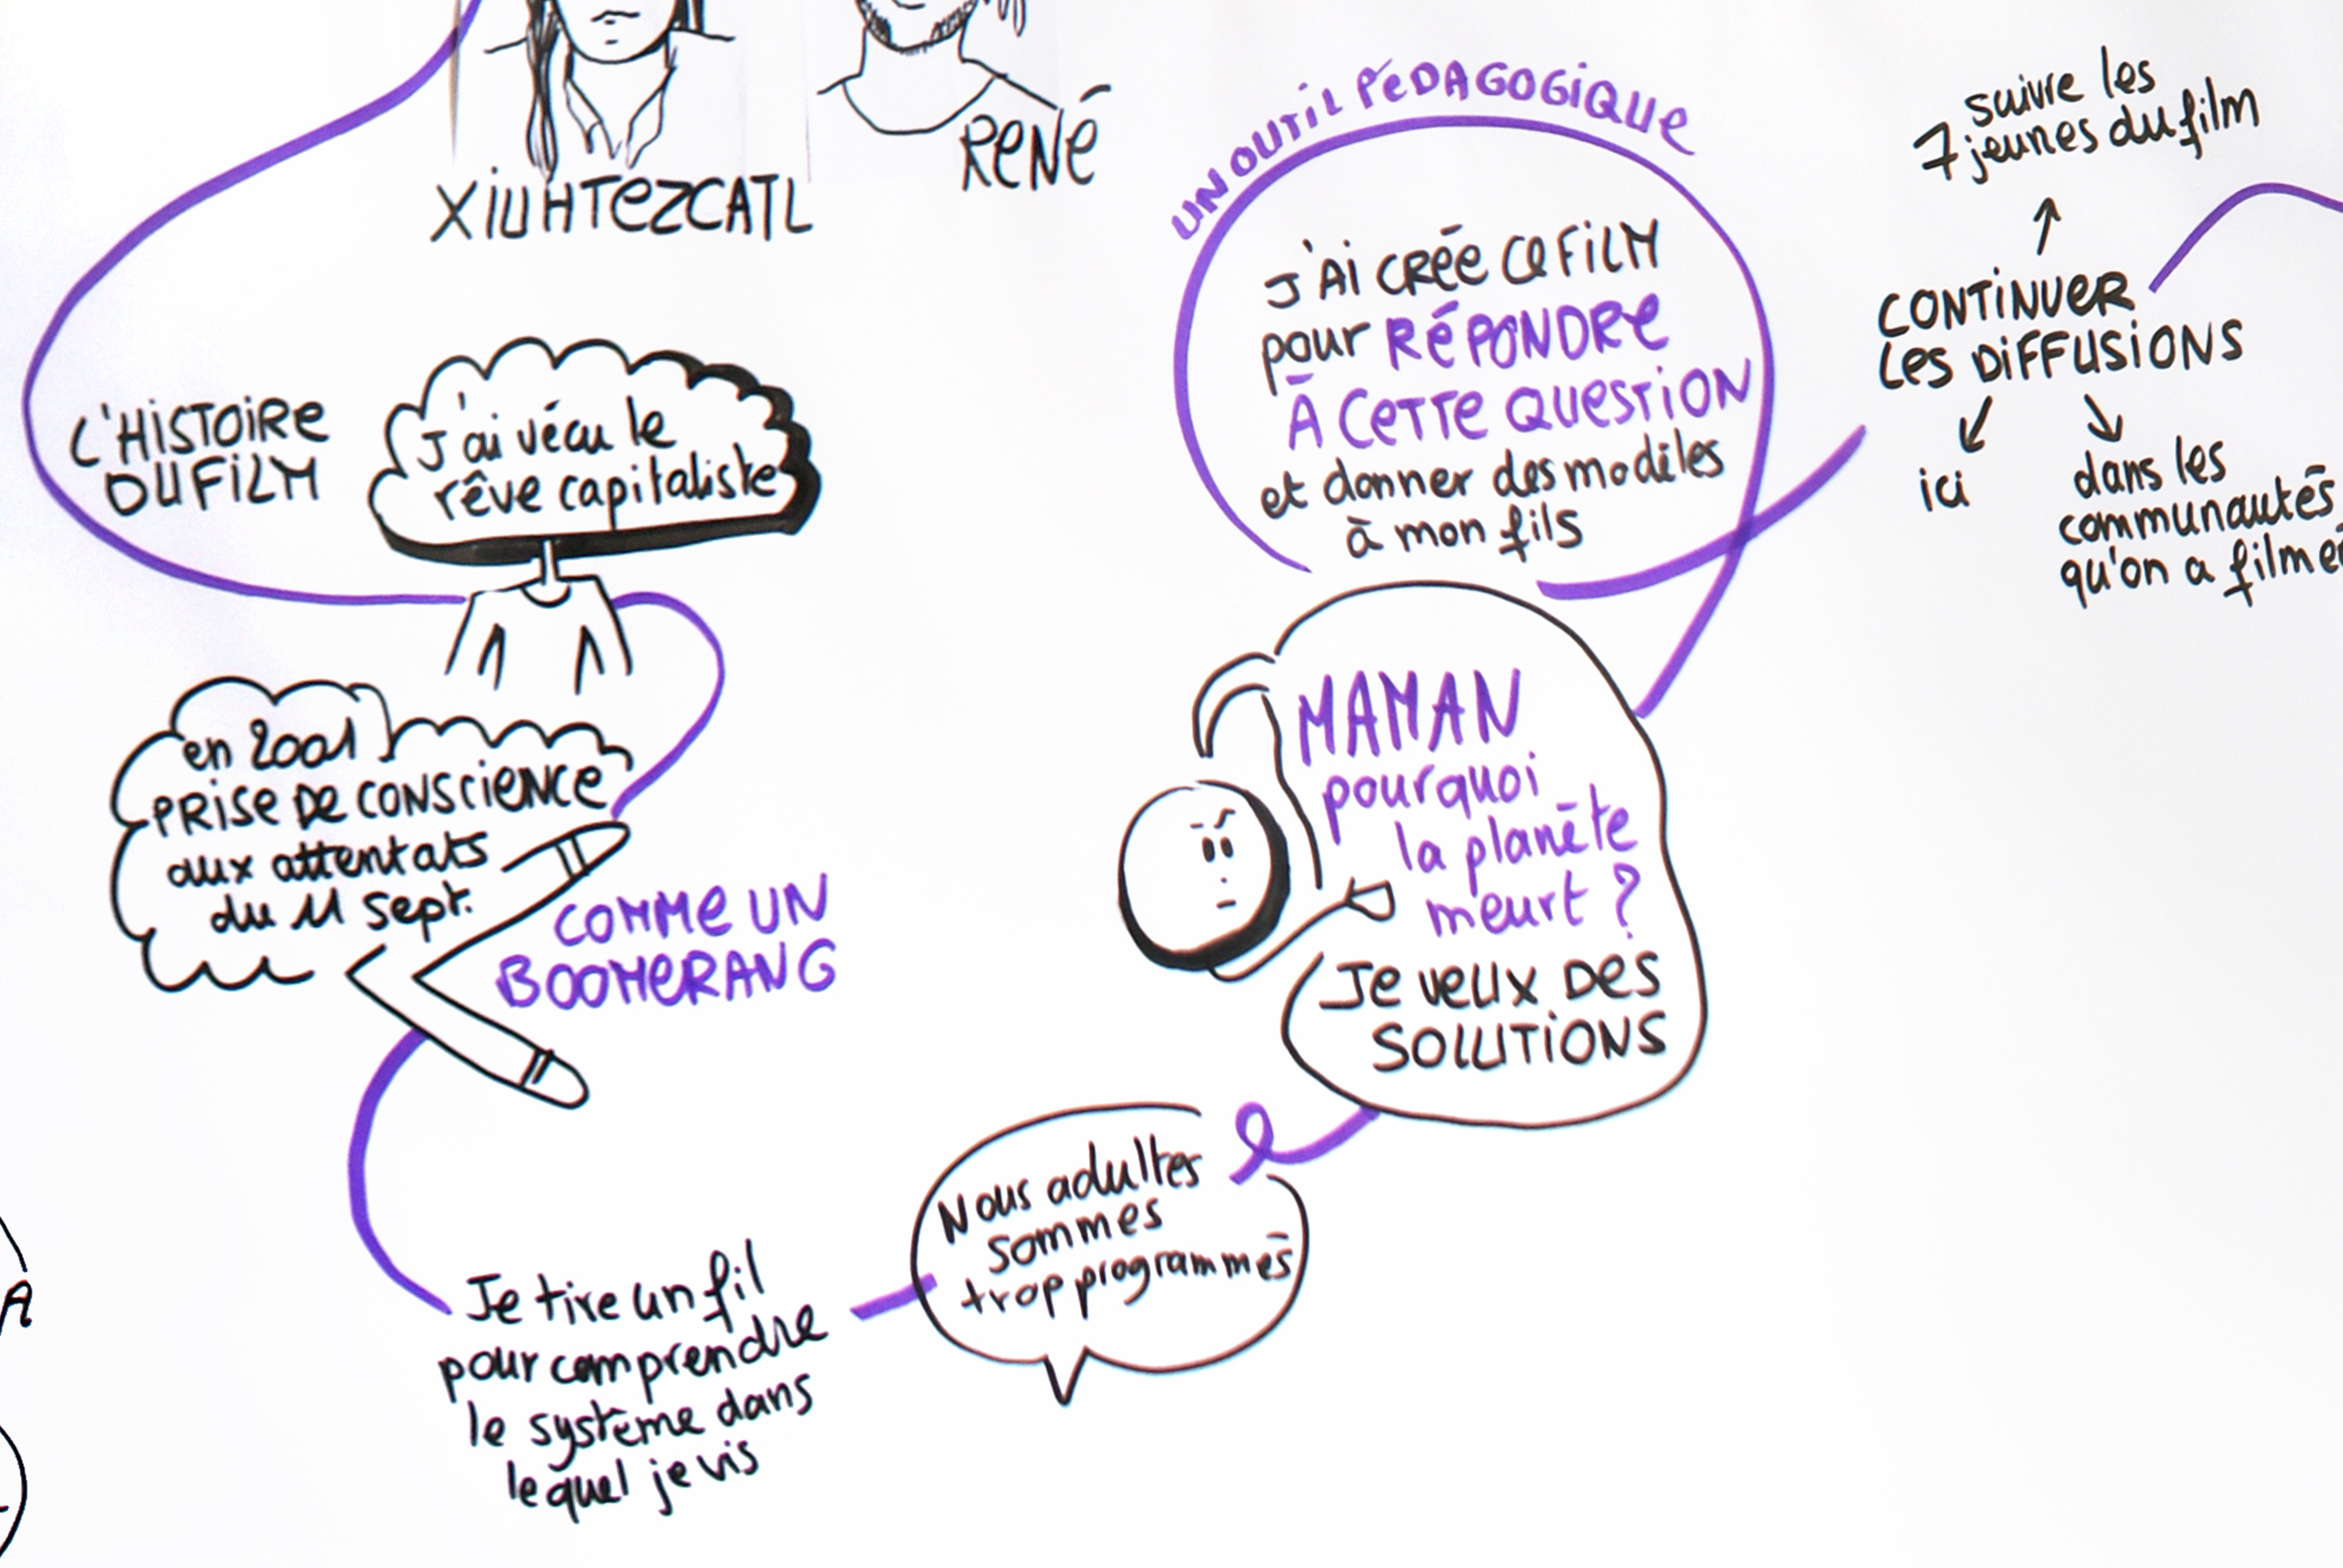 XIUHTEZCATL
RENÉ
L'HISTOIRE
DU FILM
J'ai vécu le
rêve capitaliste
en 2001
PRISE DE CONSCIENCE
aux attentats
du 11 Sept.
COMME UN
BOOMERANG
Je tire un fil
pour comprendre
le système dans
lequel je vis
Nous adultes
sommes
trop programmés
MAMAN
pourquoi
la planète
meurt ?
Je veux des
SOLUTIONS
UN OUTIL PÉDAGOGIQUE
J'AI CRÉÉ CE FILM
pour RÉPONDRE
À CETTE QUESTION
et donner des modèles
à mon fils
CONTINUER
LES DIFFUSIONS
suivre les
7 jeunes du film
ici
dans les
communautés
qu'on a filmé
A